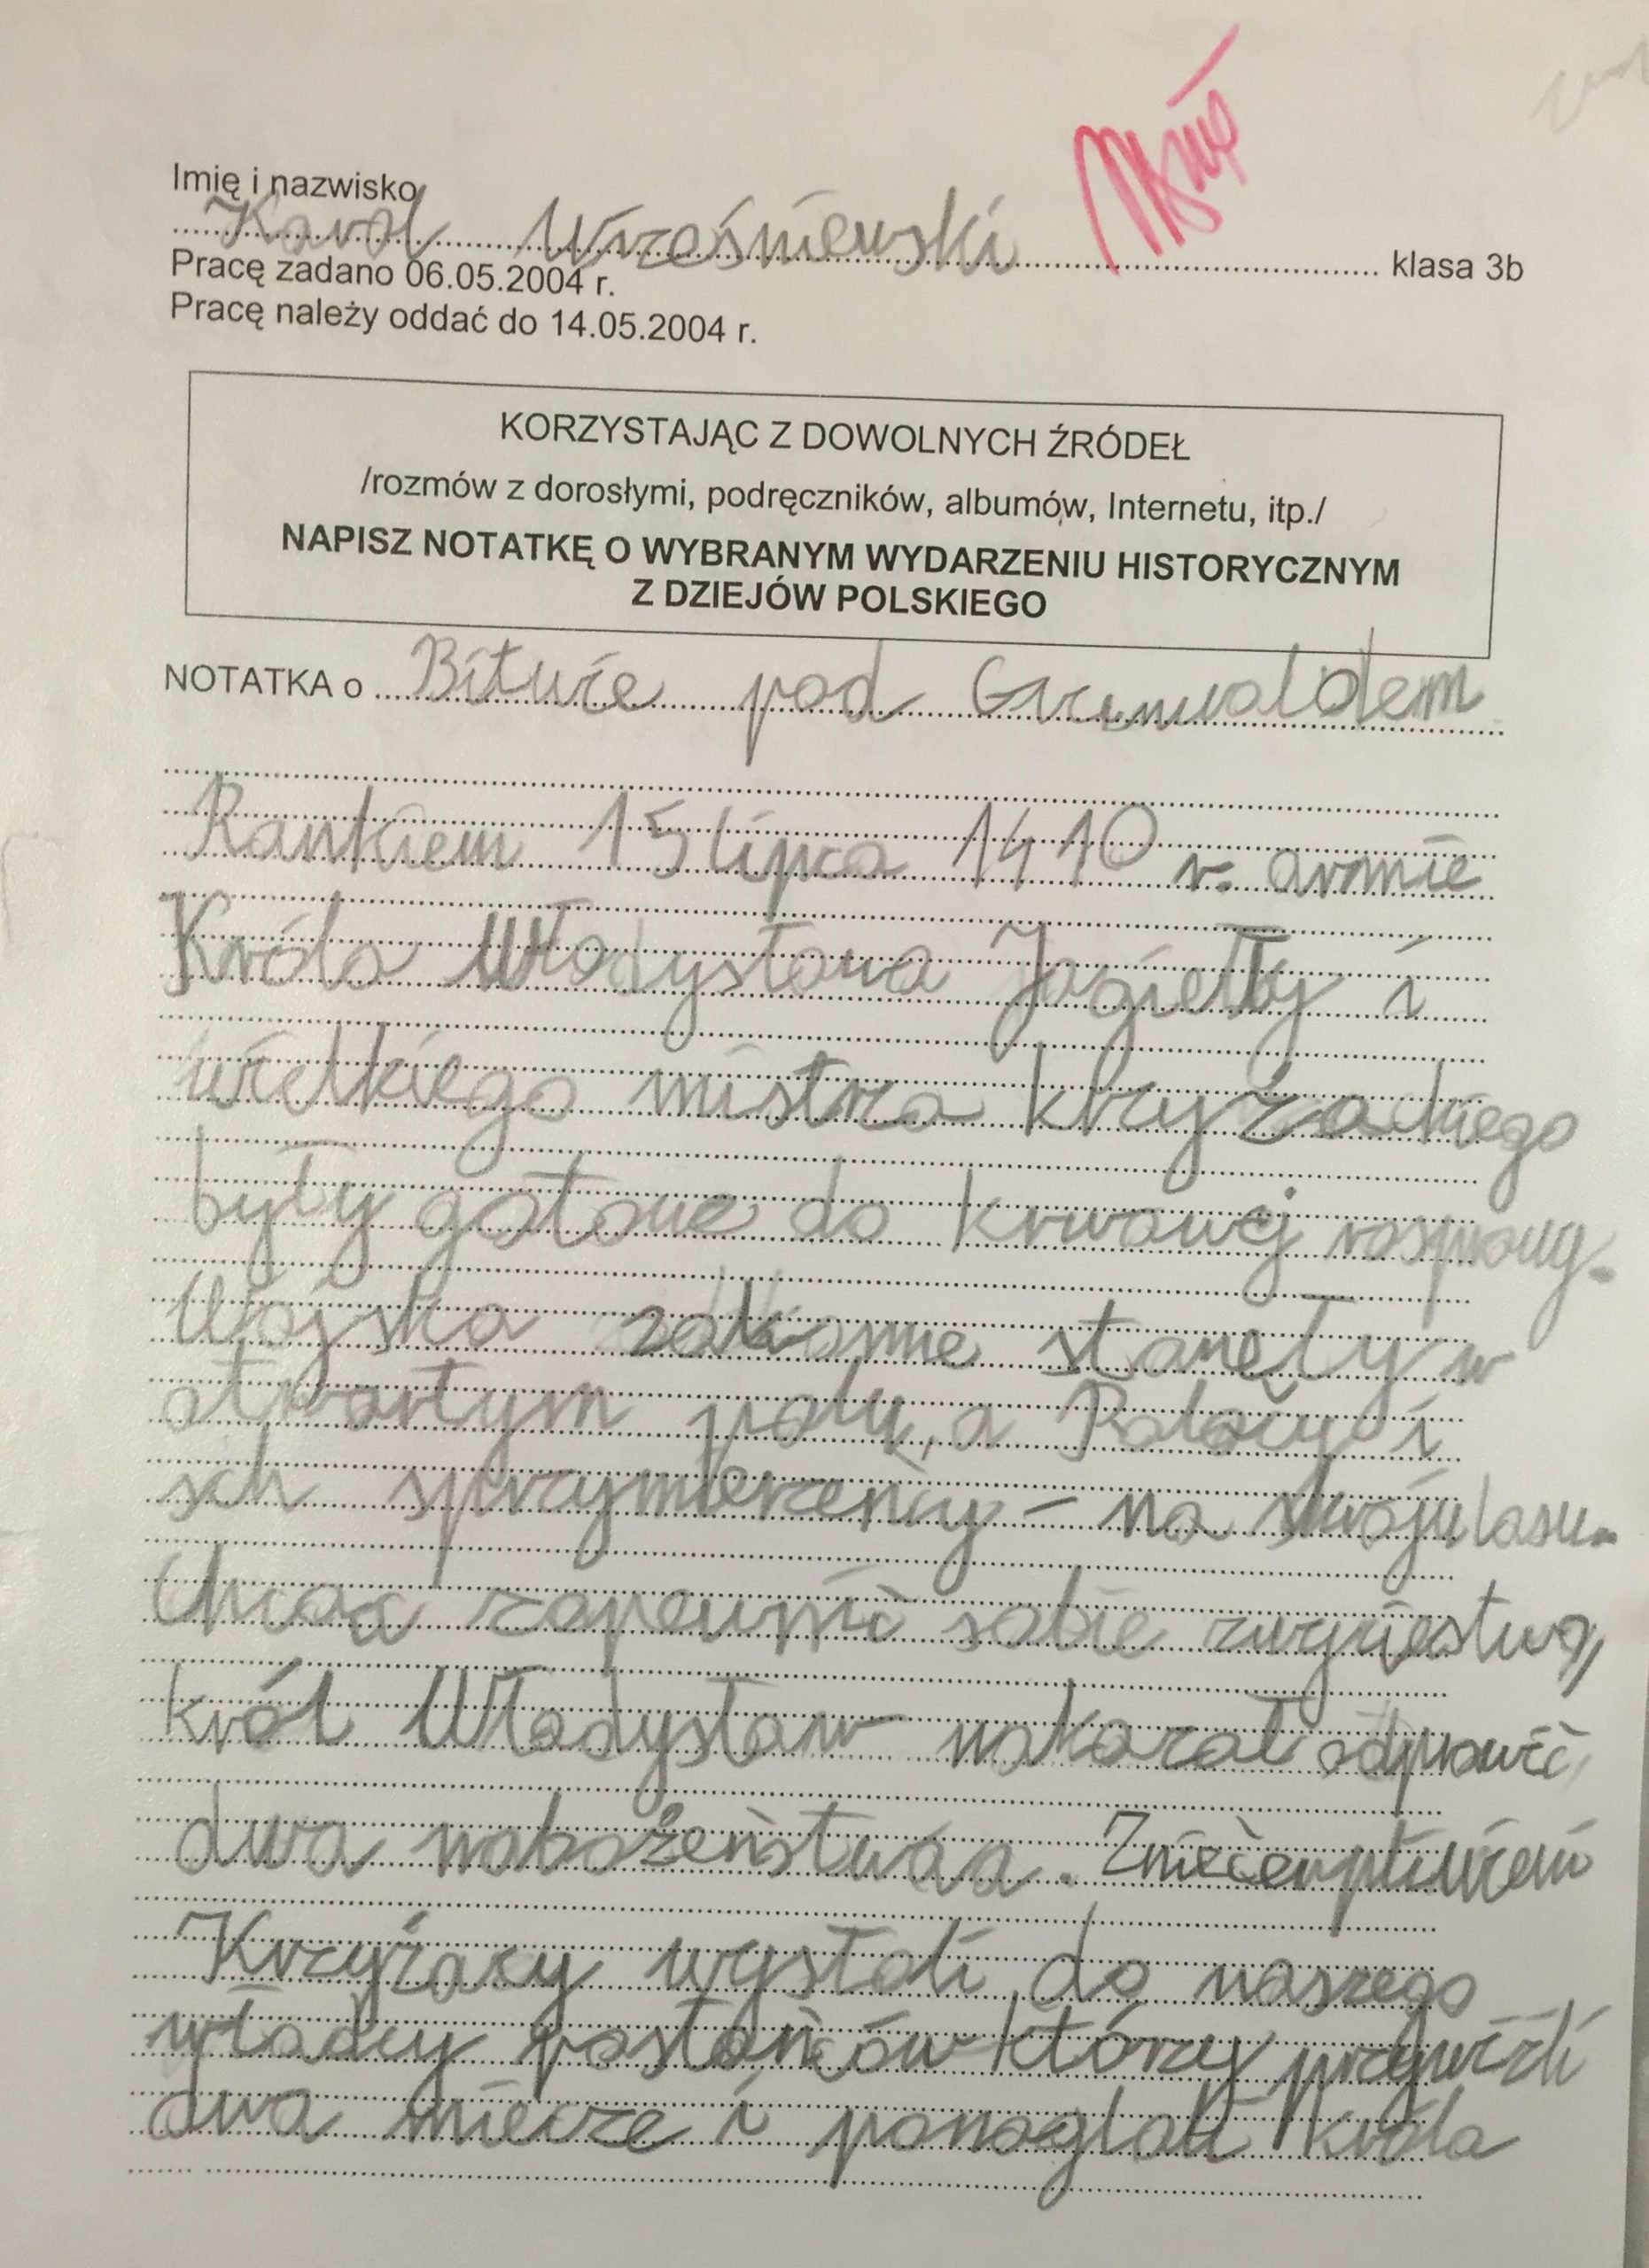 Imię i nazwisko
Karol Wrześniewski klasa 3b
Pracę zadano 06.05.2004 r.
Pracę należy oddać do 14.05.2004 r.
KORZYSTAJĄC Z DOWOLNYCH ŹRÓDEŁ
/rozmów z dorosłymi, podręczników, albumów, Internetu, itp./
NAPISZ NOTATKĘ O WYBRANYM WYDARZENIU HISTORYCZNYM
Z DZIEJÓW POLSKIEGO
NOTATKA o Bitwie pod Grunwaldem
Rankiem 15 lipca 1410 r. armie
Króla Władysława Jagiełły i
wielkiego mistrza krzyżackiego
były gotowe do krwawej rozprawy.
Wojska zakonne stanęły w
otwartym polu, a Polacy i
ich sprzymierzeńcy – na skraju lasu.
Chcąc zapewnić sobie zwycięstwo,
król Władysław nakazał odprawić
dwa nabożeństwaa. Zniecierpliwieni
Krzyżacy wysłali do naszego
władcy posłańców którzy przywieźli
dwa miecze i ponaglali króla